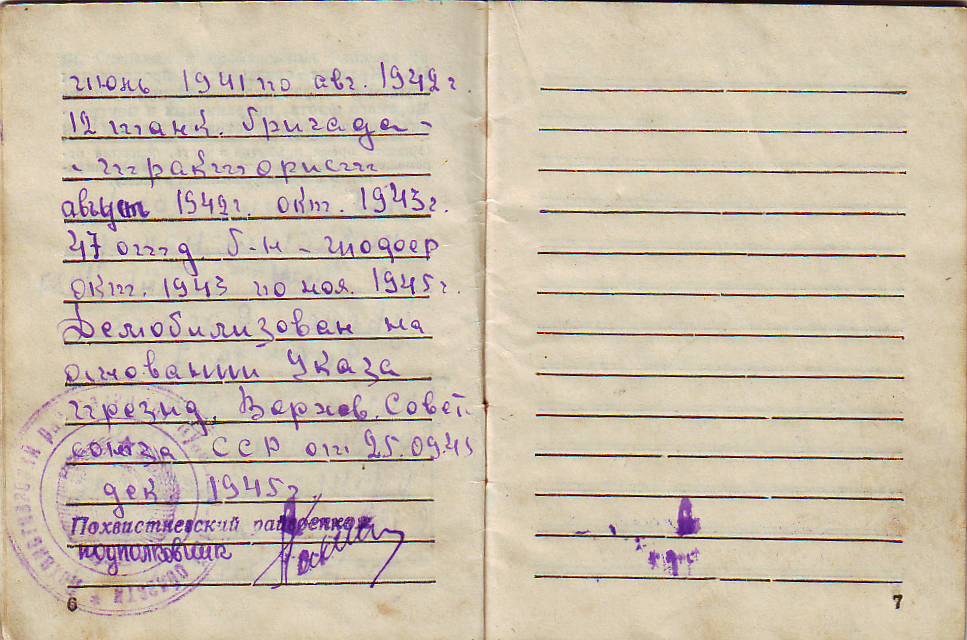 июнь 1941 по авг. 1942г.
12 танк. бригада -
- тракторист
август 1942г. окт. 1943г.
47 отд. б-н - шофер
окт. 1943 по ноя. 1945г.
Демобилизован на
основании Указа
презид. Верхов. Совет.
союза ССР от 25.09.45
дек 1945г
Похвистневский райвоенком
подполковник
6
7